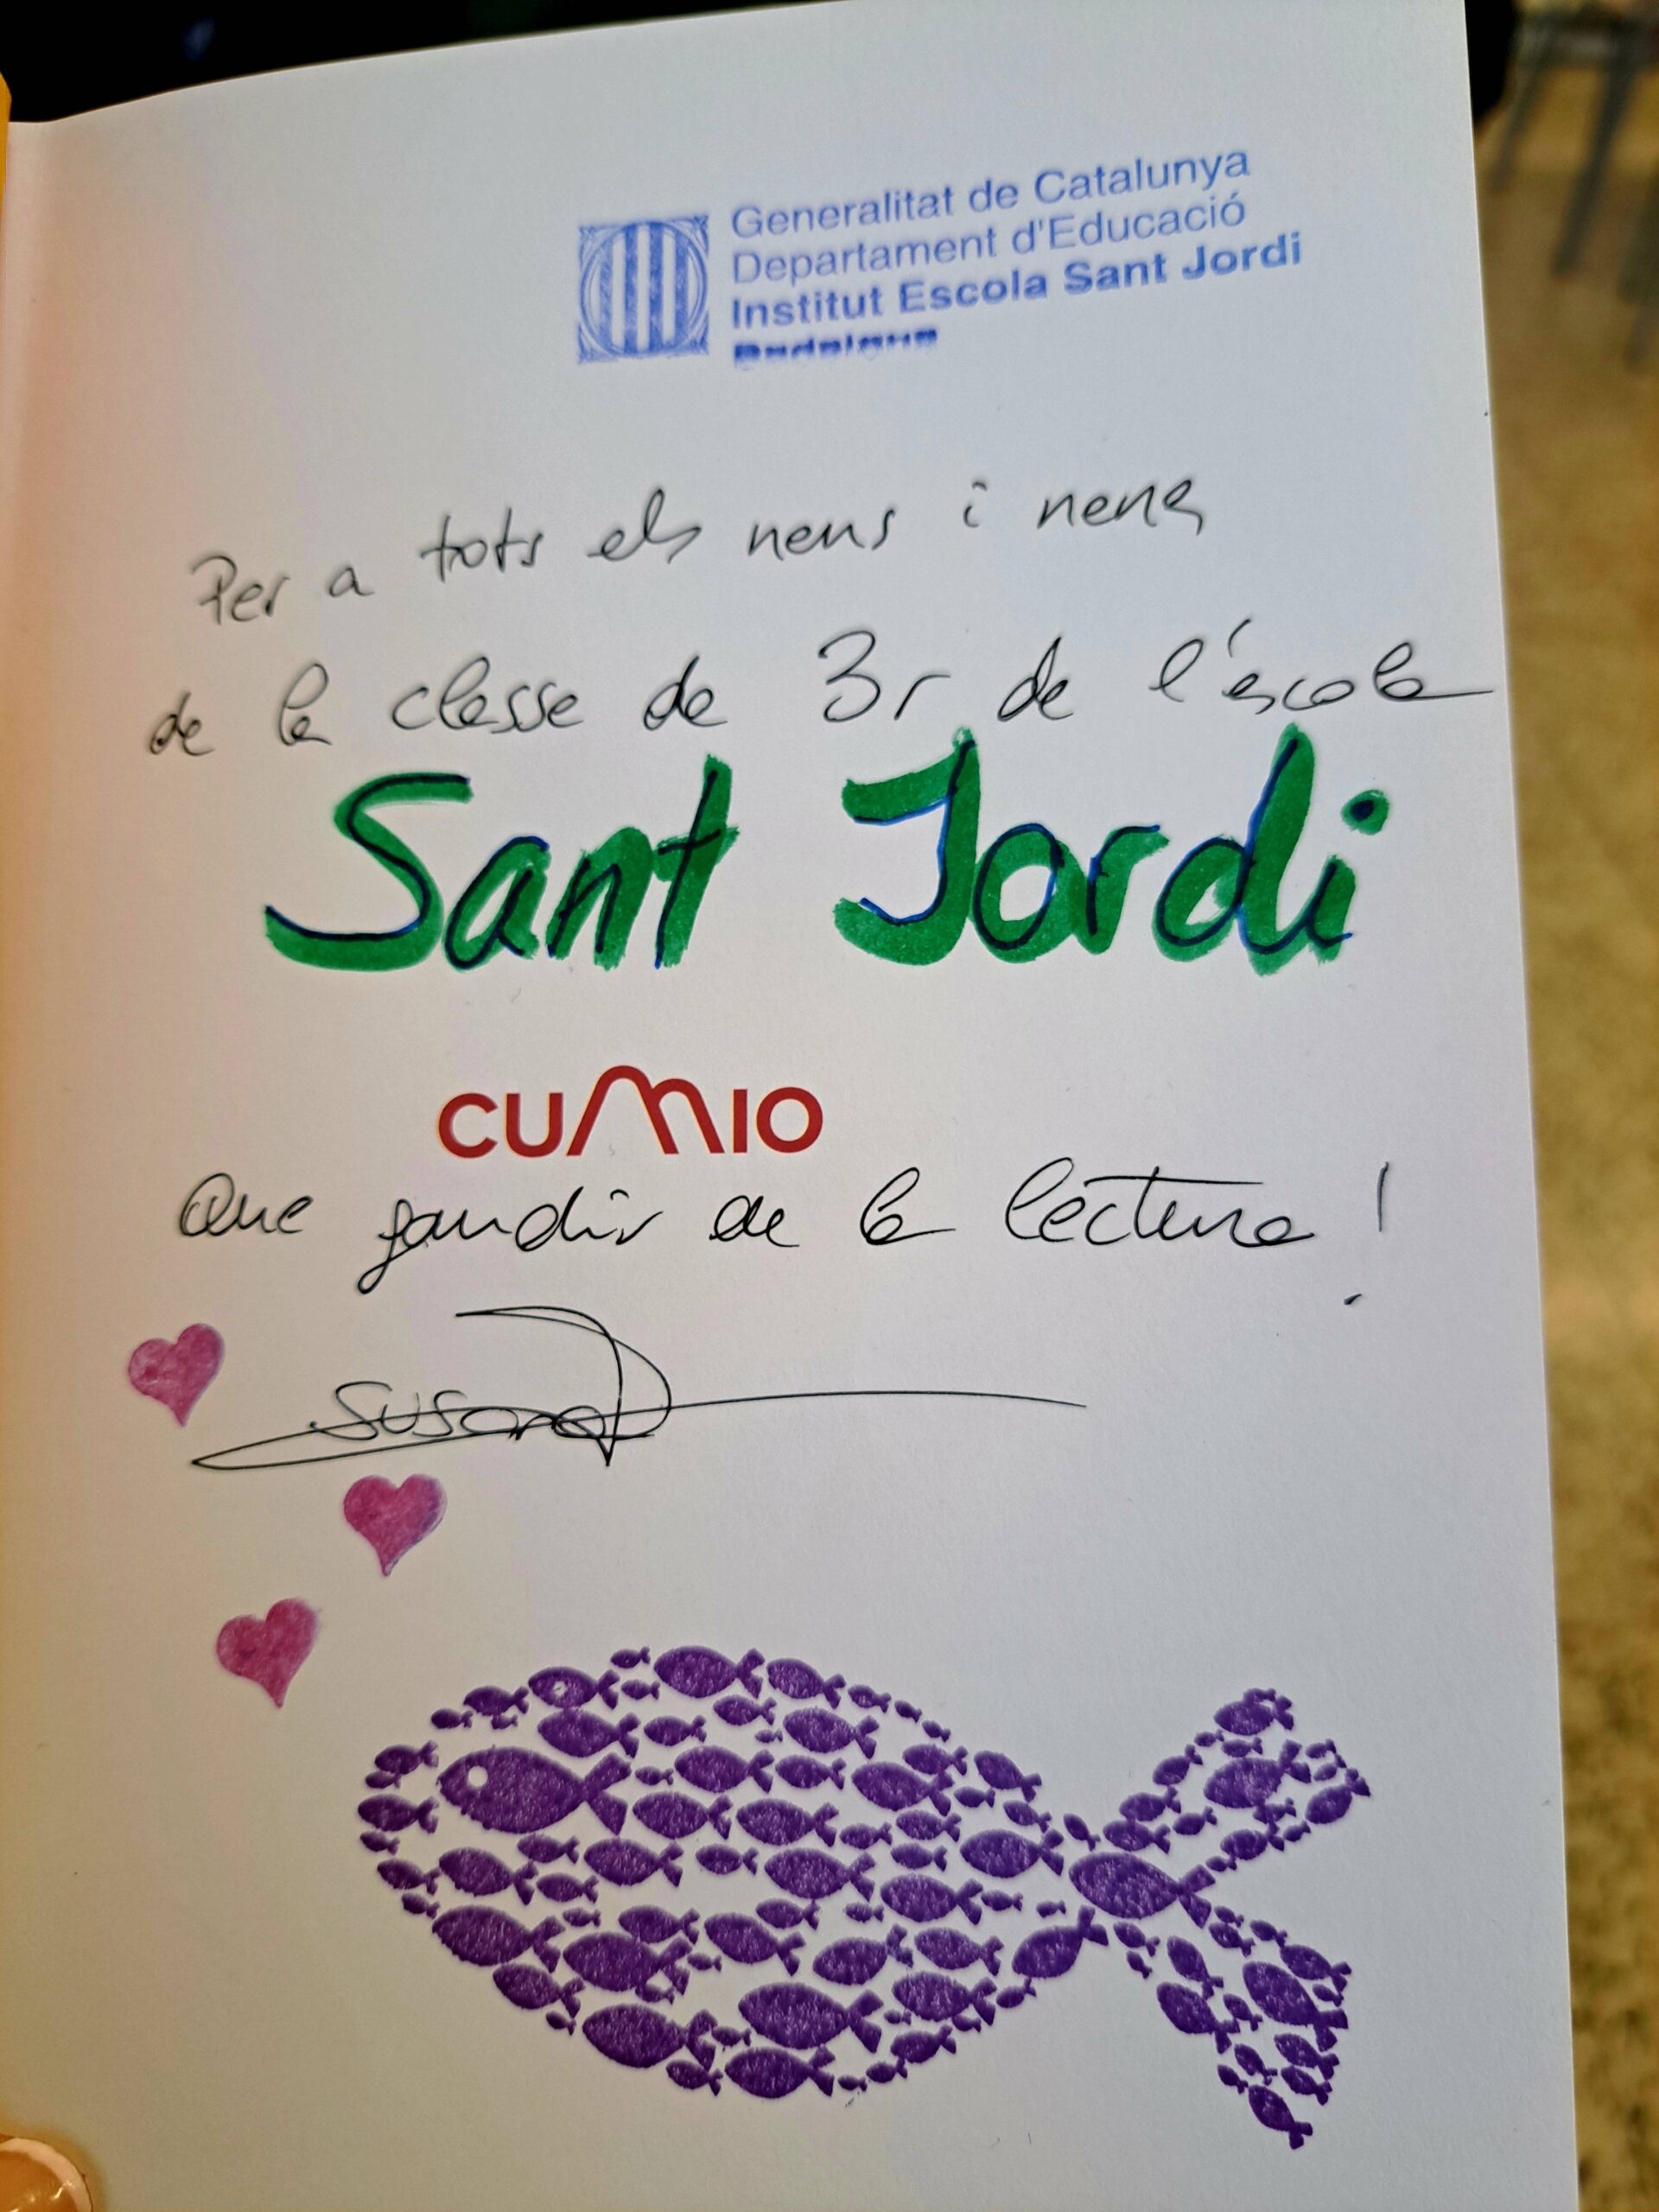 Generalitat de Catalunya
Departament d'Educació
Institut Escola Sant Jordi
Per a tots els nens i nens
de la classe de 3r de l'escola
Sant Jordi
CUMIO
Que gaudir de la lectura!
Susana